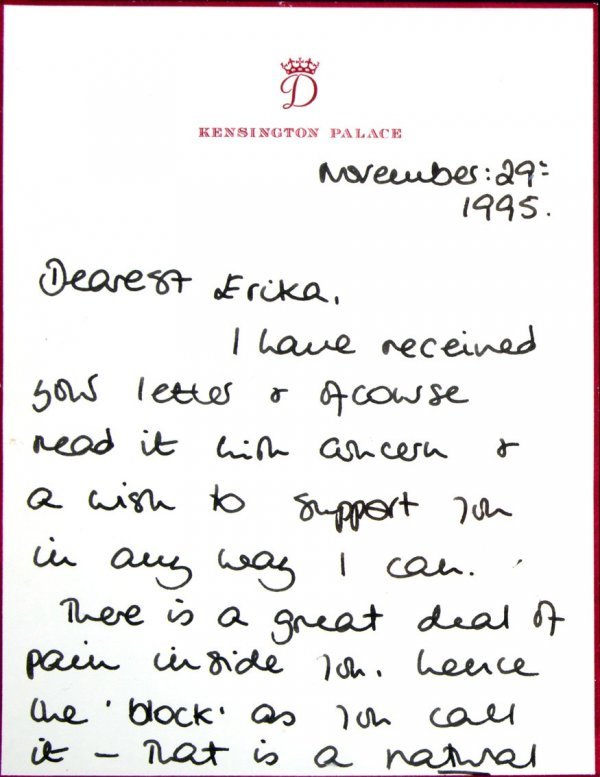 D
KENSINGTON PALACE
November: 29:
1995.
Dearest Erika,
I have received
your letter & of course
read it with concern &
a wish to support you
in any way I can.
There is a great deal of
pain inside you, hence
the 'block' as you call
it – that is a natural